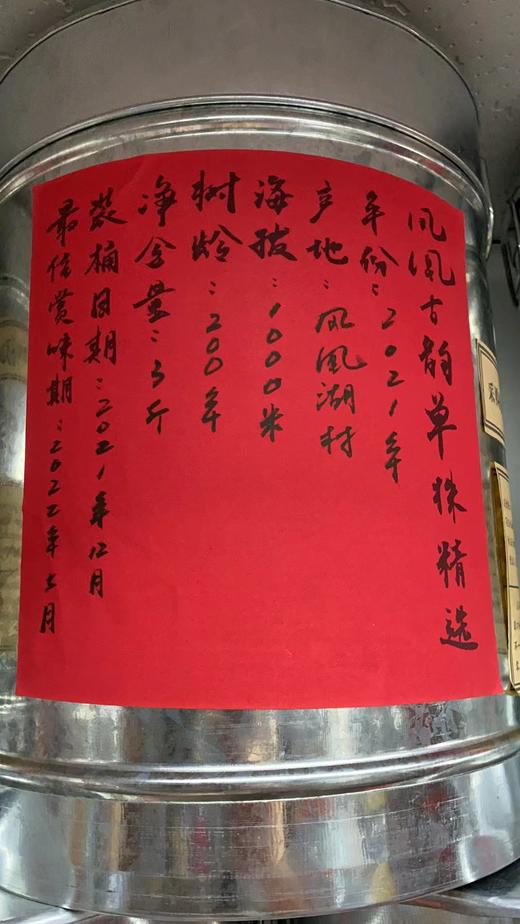 凤凰古韵单株精选
年份：2021年
产地：凤凰湖村
海拔：1000米
树龄：200年
净含量：3斤
装桶日期：2021年12月
最佳赏味期：2022年5月